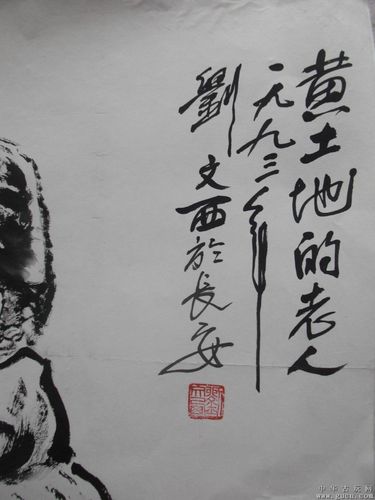 黄土地的老人
一九九三年
劉文西於長安
中华古玩网
www.gucn.com